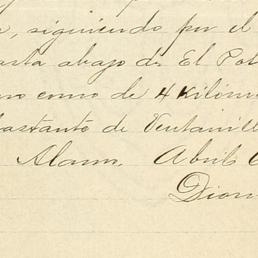 , siguiendo por el
asta abajo de El Pot
como de 4 Kilóm
bastante de Ventanill
Alamo, Abril
Dion